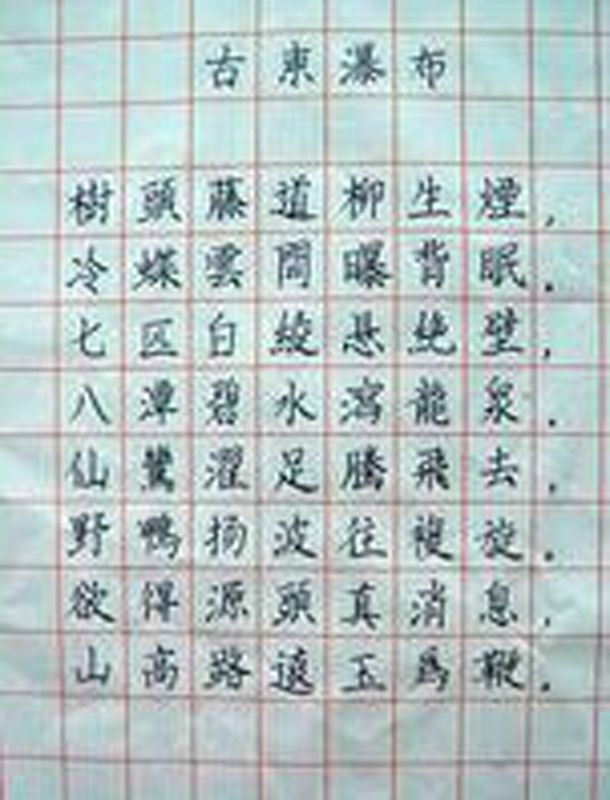 古東瀑布
樹頭藤道柳生煙，
冷蝶雲間曝背眠．
七匹白絞悬絶壁，
八潭碧水瀉龍泉．
仙鷺濯足騰飛去，
野鴨扬波往複旋．
欲得源頭真消息，
山高路遠玉為鞭．